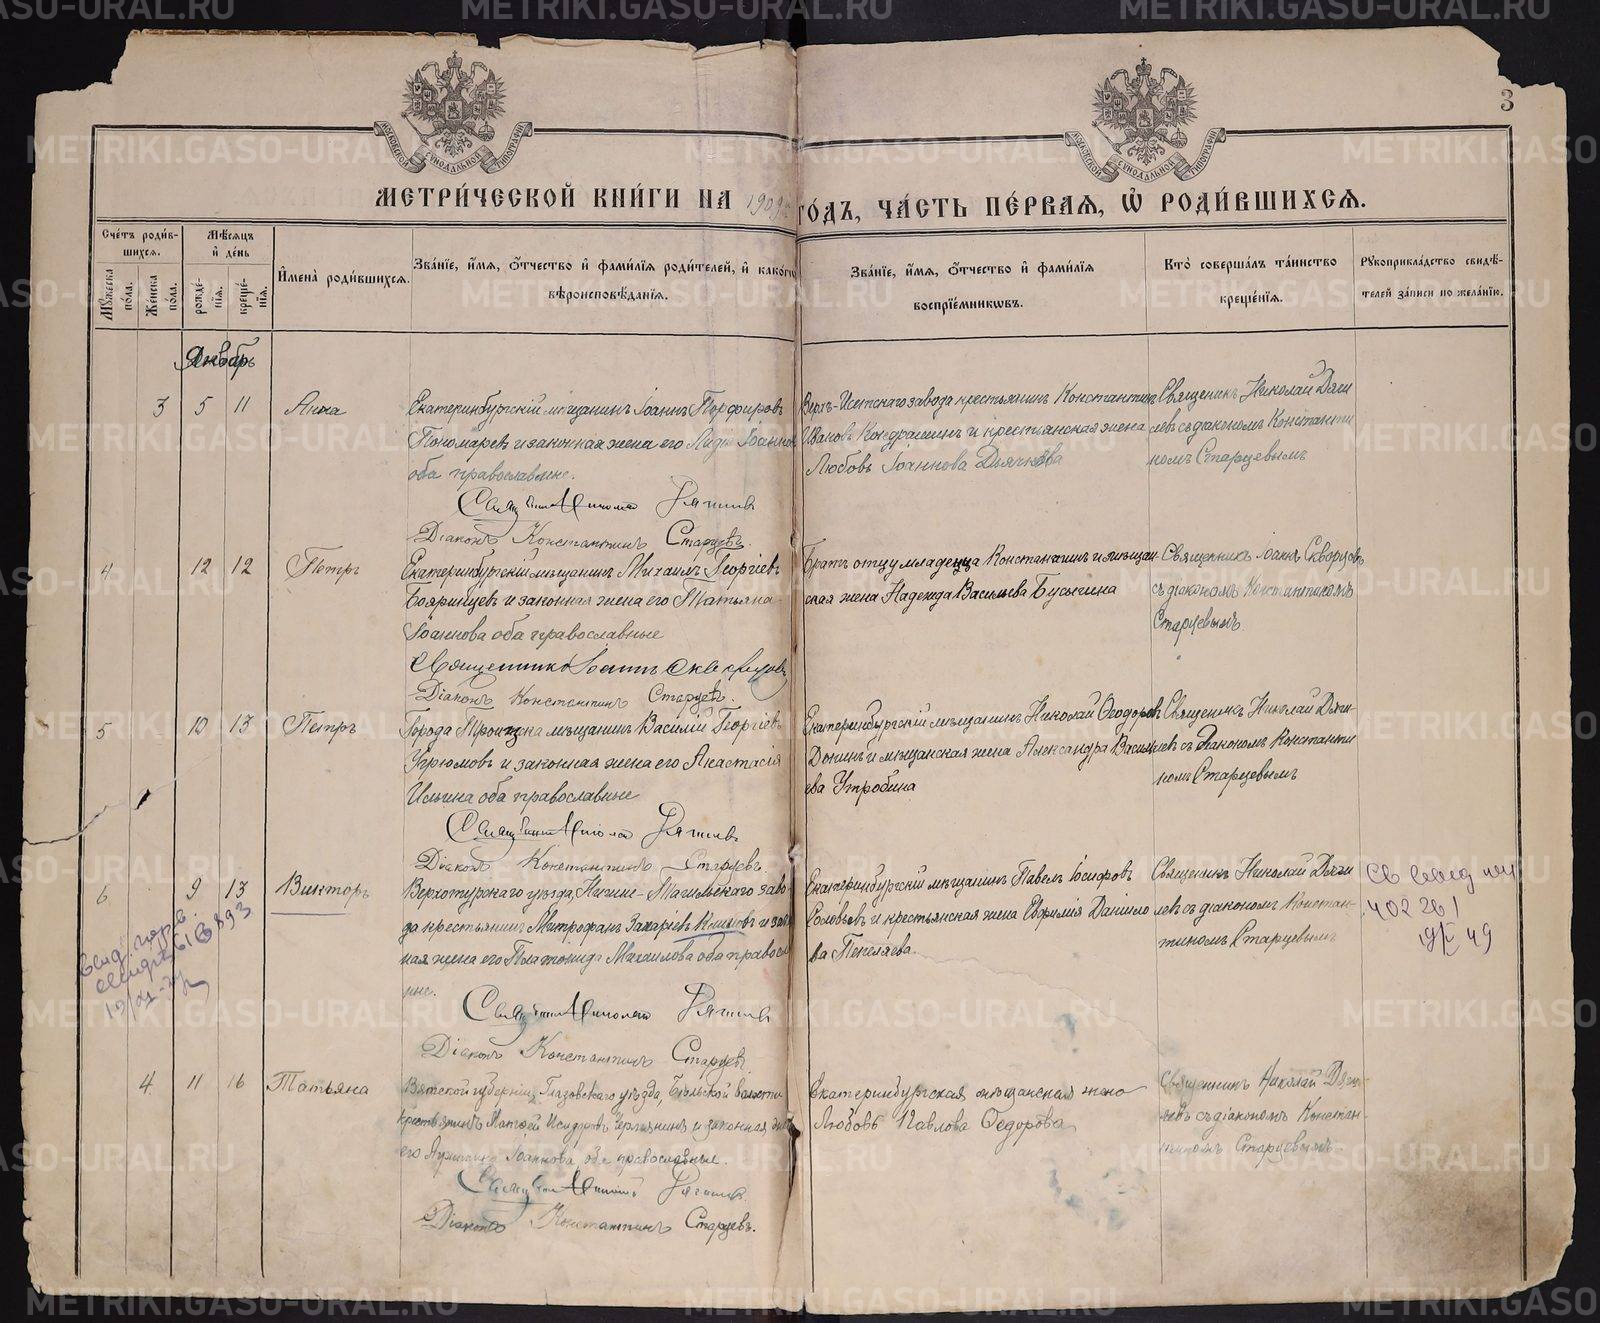 METRIKI.GASO-URAL.RU
3
МОСКОВСКОЙ СѴНОДАЛЬНОЙ ТИПОГРАФІИ
МОСКОВСКОЙ СѴНОДАЛЬНОЙ ТИПОГРАФІИ
МЕТРИ́ЧЕСКОЙ КНИ́ГИ НА 1909 ГО́ДЪ, ЧА́СТЬ ПЕ́РВАЯ, Ѡ РОДИ́ВШИХСЯ.
Сче́тъ роди́в-
шихся.
Му́жеска по́ла.
Же́нска по́ла.
Мѣ́сяцъ
и де́нь
рожде́-
нія.
креще́-
нія.
Имена̀ роди́вшихся.
Зва́ніе, и́мя, о́тчество и фами́лія роди́телей, и како́гѡ
вѣроисповѣ́данія.
Зва́ніе, и́мя, о́тчество и фами́лія
воспріе́мниковъ.
Кто̀ соверша́лъ та́инство
креще́нія.
Рукоприкла́дство свидѣ́-
телей за́писи по жела́нію.
Январь
3 5 11 Анна
Екатеринбургскій мѣщанинъ Іоаннъ Порфировъ
Пономаревъ и законная жена его Лидія Іоаннова
оба православные.
Священникъ Николай Дягилевъ
Діаконъ Константинъ Старцевъ.
Верхъ-Исетскаго завода крестьянинъ Константинъ
Ивановъ Кондрашинъ и крестьянская жена
Любовь Іоаннова Дьячкова
Священникъ Николай Дяги
левъ съ діакономъ Константи
номъ Старцевымъ
4 12 12 Петръ
Екатеринбургскій мѣщанинъ Михаилъ Георгіевъ
Бояринцевъ и законная жена его Татьяна
Іоаннова оба православные
Священникъ Іоаннъ Скворцовъ
Діаконъ Константинъ Старцевъ.
Братъ отцу младенца Константинъ и мѣщан
ская жена Надежда Васильева Бусыгина
Священникъ Іоаннъ Скворцовъ
съ діакономъ Константиномъ
Старцевымъ
5 10 13 Петръ
Города Троицка мѣщанинъ Василій Георгіевъ
Угрюмовъ и законная жена его Анастасія
Ильина оба православные
Священникъ Николай Дягилевъ
Діаконъ Константинъ Старцевъ.
Екатеринбургскій мѣщанинъ Николай Ѳеодоровъ
Донинъ и мѣщанская жена Александра Василь
ева Утробина
Священникъ Николай Дяги
левъ съ діакономъ Константи
номъ Старцевымъ
6 9 13 Викторъ
Верхотурскаго уѣзда, Нижне-Тагильскаго заво-
да крестьянинъ Митрофанъ Захаріевъ и закон
ная жена его Платонида Михаилова оба православ
ные.
Священникъ Николай Дягилевъ
Діаконъ Константинъ Старцевъ.
Екатеринбургскій мѣщанинъ Павелъ Іосифовъ
Соловьевъ и крестьянская жена Евфимія Даніило
ва Пепеляева.
Священникъ Николай Дяги
левъ съ діакономъ Констан-
тиномъ Старцевымъ
402261
49
4 11 16 Татьяна
Вятской губерніи, Глазовскаго уѣзда, Бѣльской волости
крестьянинъ Матѳей Исидоровъ и законная жена
его Іоаннова, оба православные.
Священникъ Николай Дягилевъ
Діаконъ Константинъ Старцевъ.
Екатеринбургская мѣщанская жена
Любовь Павлова Ѳедорова
Священникъ Николай Дяги-
левъ съ діакономъ Констан-
тиномъ Старцевымъ